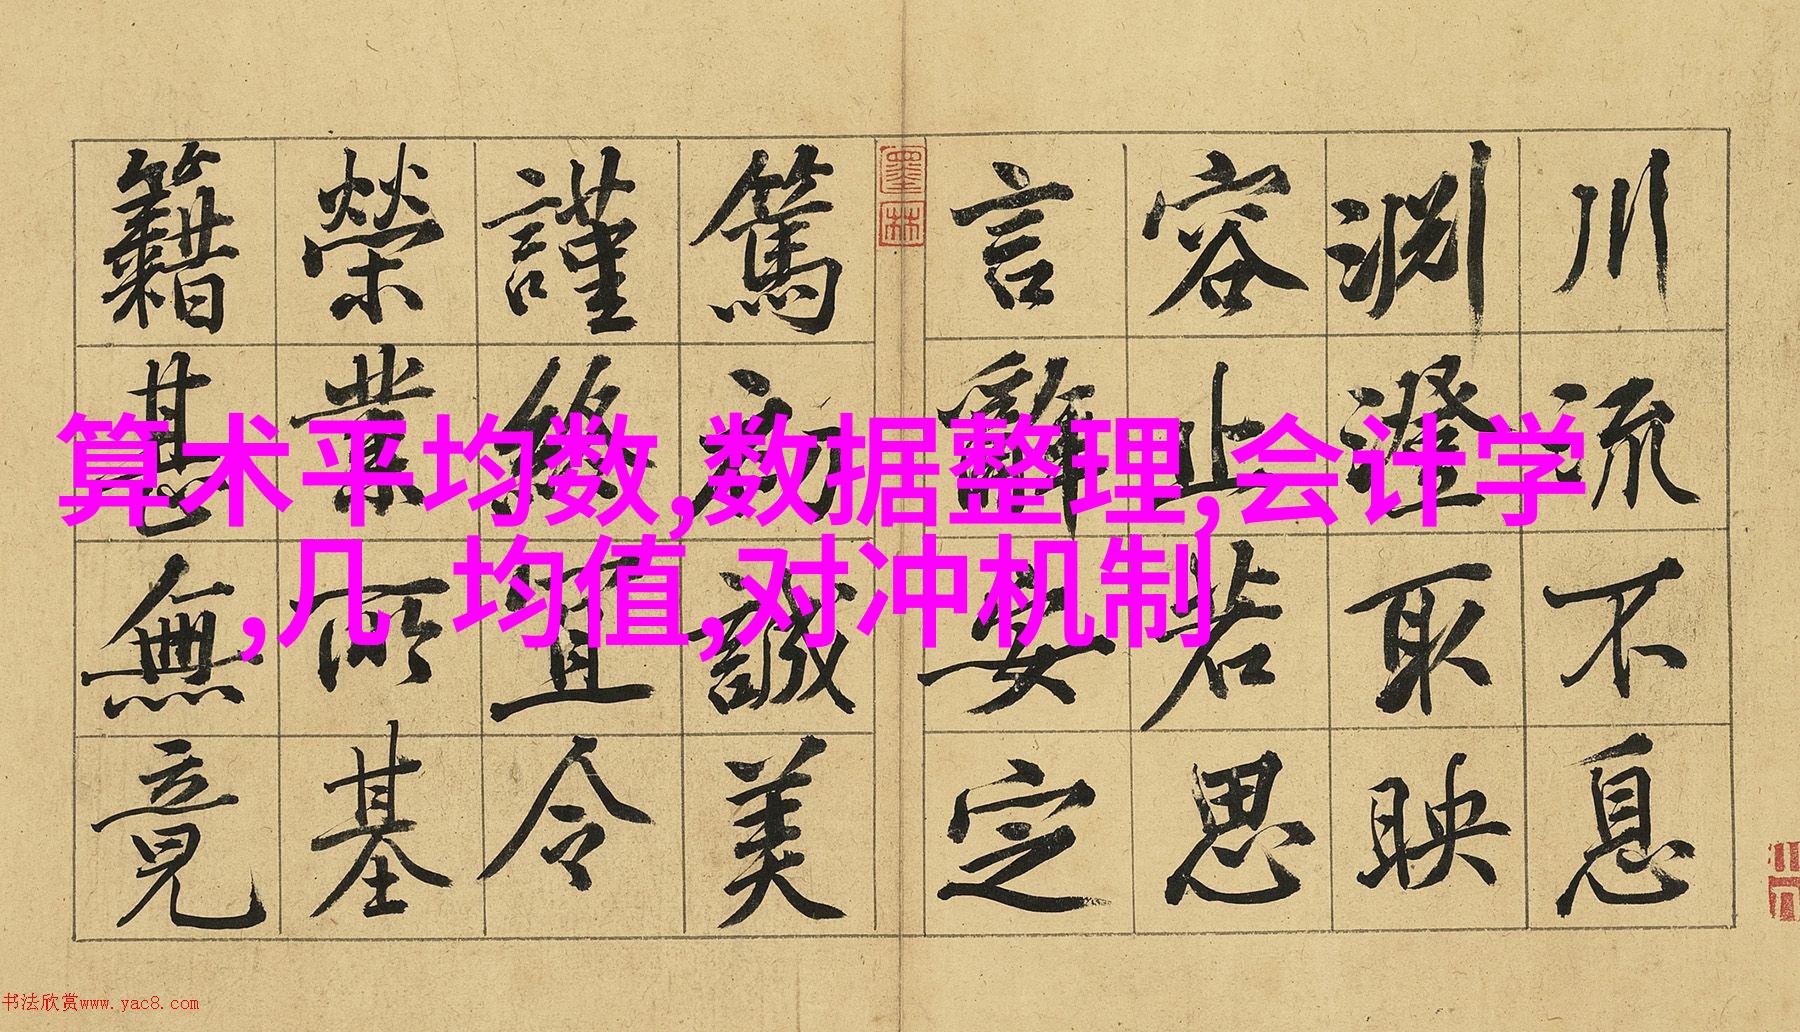 川流不息
淵澄取映
容止若思
言辭安定
篤初誠美
謹終宜令
榮業所基
籍甚無竟
墨林
算术平均数,数据整理,会计学
,几 均值,对冲机制
书法欣赏www.yac8.com